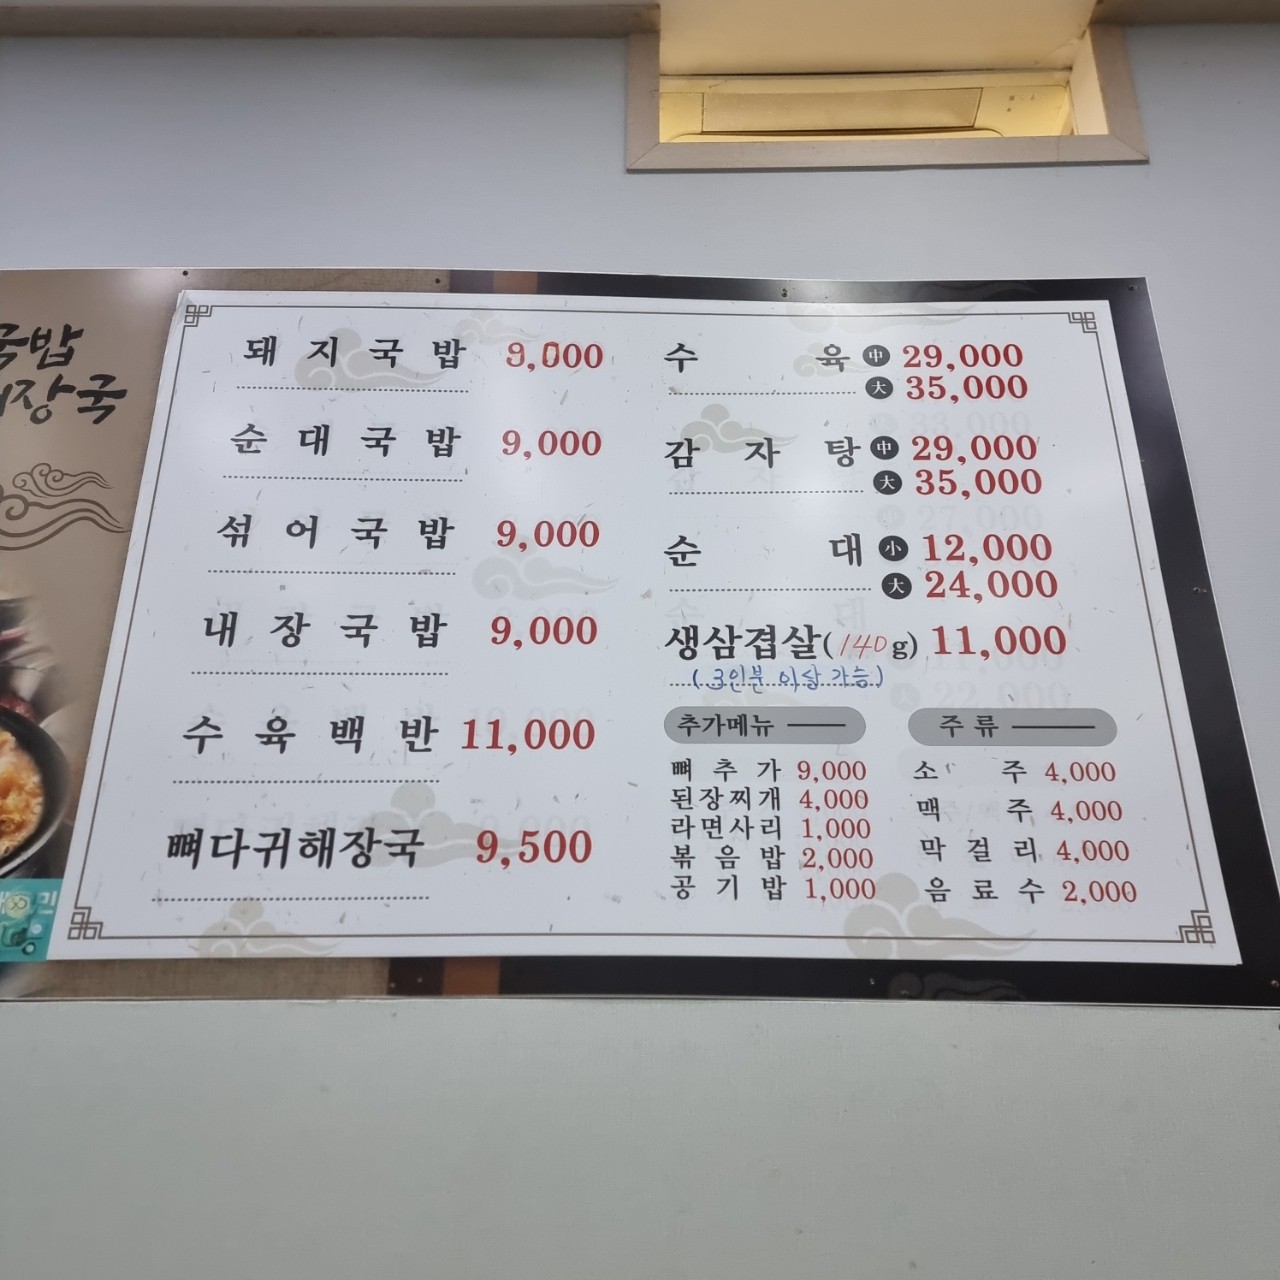 국밥
장국
돼지국밥 9,000
순대국밥 9,000
섞어국밥 9,000
내장국밥 9,000
수육백반 11,000
뼈다귀해장국 9,500
수육 中 29,000
大 35,000
감자탕 中 29,000
大 35,000
순대 小 12,000
大 24,000
생삼겹살(140g) 11,000
(3인분 이상 가능)
추가메뉴
뼈추가 9,000
된장찌개 4,000
라면사리 1,000
볶음밥 2,000
공기밥 1,000
주류
소주 4,000
맥주 4,000
막걸리 4,000
음료수 2,000